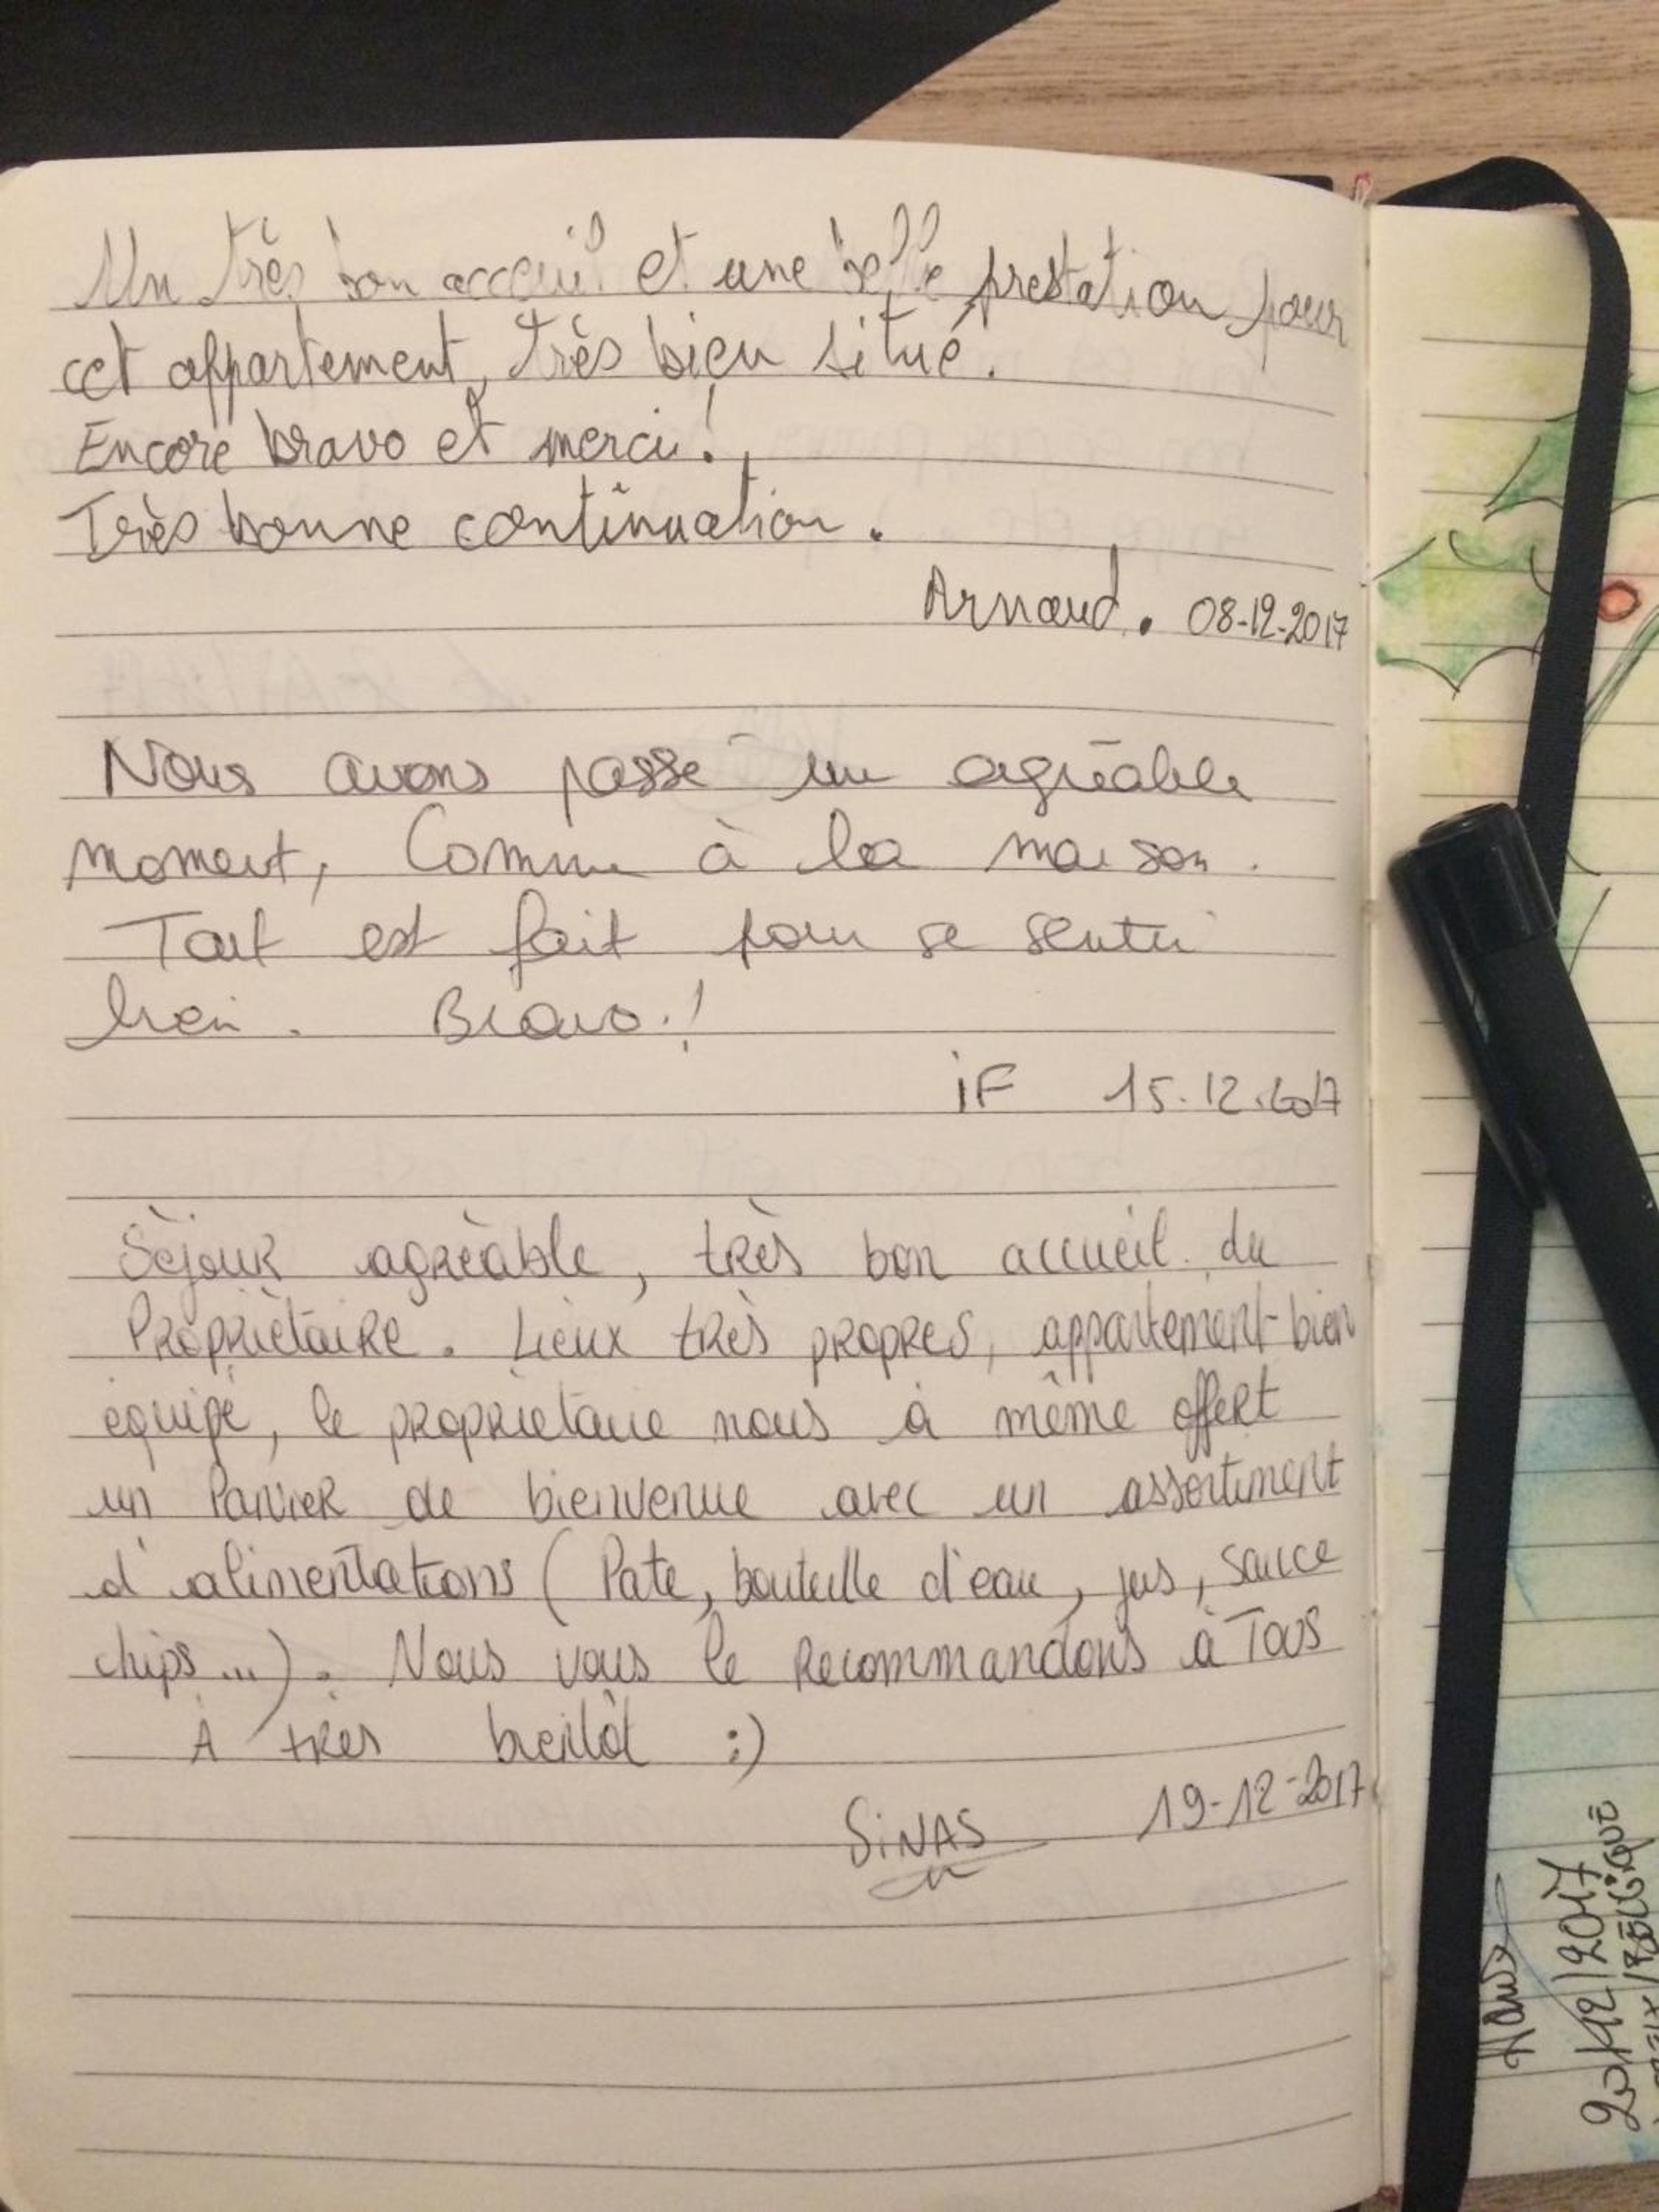 Un très bon acceuil et une belle prestation pour
cet appartement, très bien situé.
Encore bravo et merci !
Très bonne continuation.
Arnaud. 08-12-2017
Nous avons passé un agréable
moment, Comme à la maison.
Tout est fait pour se sentir
bien. Bravo !
iF 15.12.2017
Séjour agréable, très bon accueil du
Propriétaire. Lieux très propres, appartement bien
équipé, le propriétaire nous à même offert
un Panier de bienvenue avec un assortiment
d'alimentations (Pate, bouteille d'eau, jus, sauce
chips...). Nous vous le Recommandons à Tous
À très bientôt :)
SiNAS 19-12-2017
20/12/2017